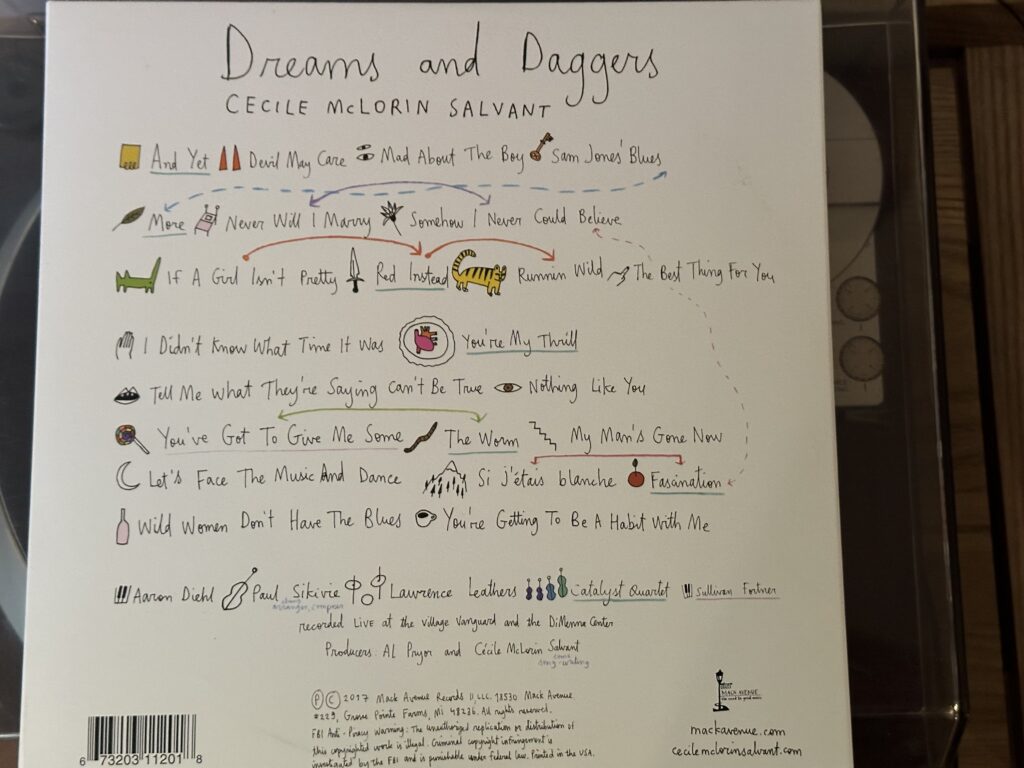 Dreams and Daggers
CECILE McLORIN SALVANT
And Yet Devil May Care Mad About The Boy Sam Jones' Blues
More Never Will I Marry Somehow I Never Could Believe
If A Girl Isn't Pretty Red Instead Runnin Wild The Best Thing For You
I Didn't Know What Time It Was You're My Thrill
Tell Me What They're Saying Can't Be True Nothing Like You
You've Got To Give Me Some The Worm My Man's Gone Now
Let's Face The Music And Dance Si j'étais blanche Fascination
Wild Women Don't Have The Blues You're Getting To Be A Habit With Me
Aaron Diehl Paul Sikivie Lawrence Leathers Catalyst Quartet Sullivan Fortner
arranger, composer
recorded LIVE at the Village Vanguard and the DiMenna Center
Producers Al Pryor and Cécile McLorin Salvant
some
song-writing
Ⓟ Ⓒ 2017 Mack Avenue Records II LLC. 18530 Mack Avenue
#229, Grosse Pointe Farms, MI 48236. All rights reserved.
FBI Anti-Piracy Warning: The unauthorized replication or distribution of
this copyrighted work is illegal. Criminal copyright infringement is
investigated by the FBI and is punishable under federal law. Printed in the USA.
MACK AVENUE
mackavenue.com
cecilemclorinsalvant.com
6 73203 11201 8